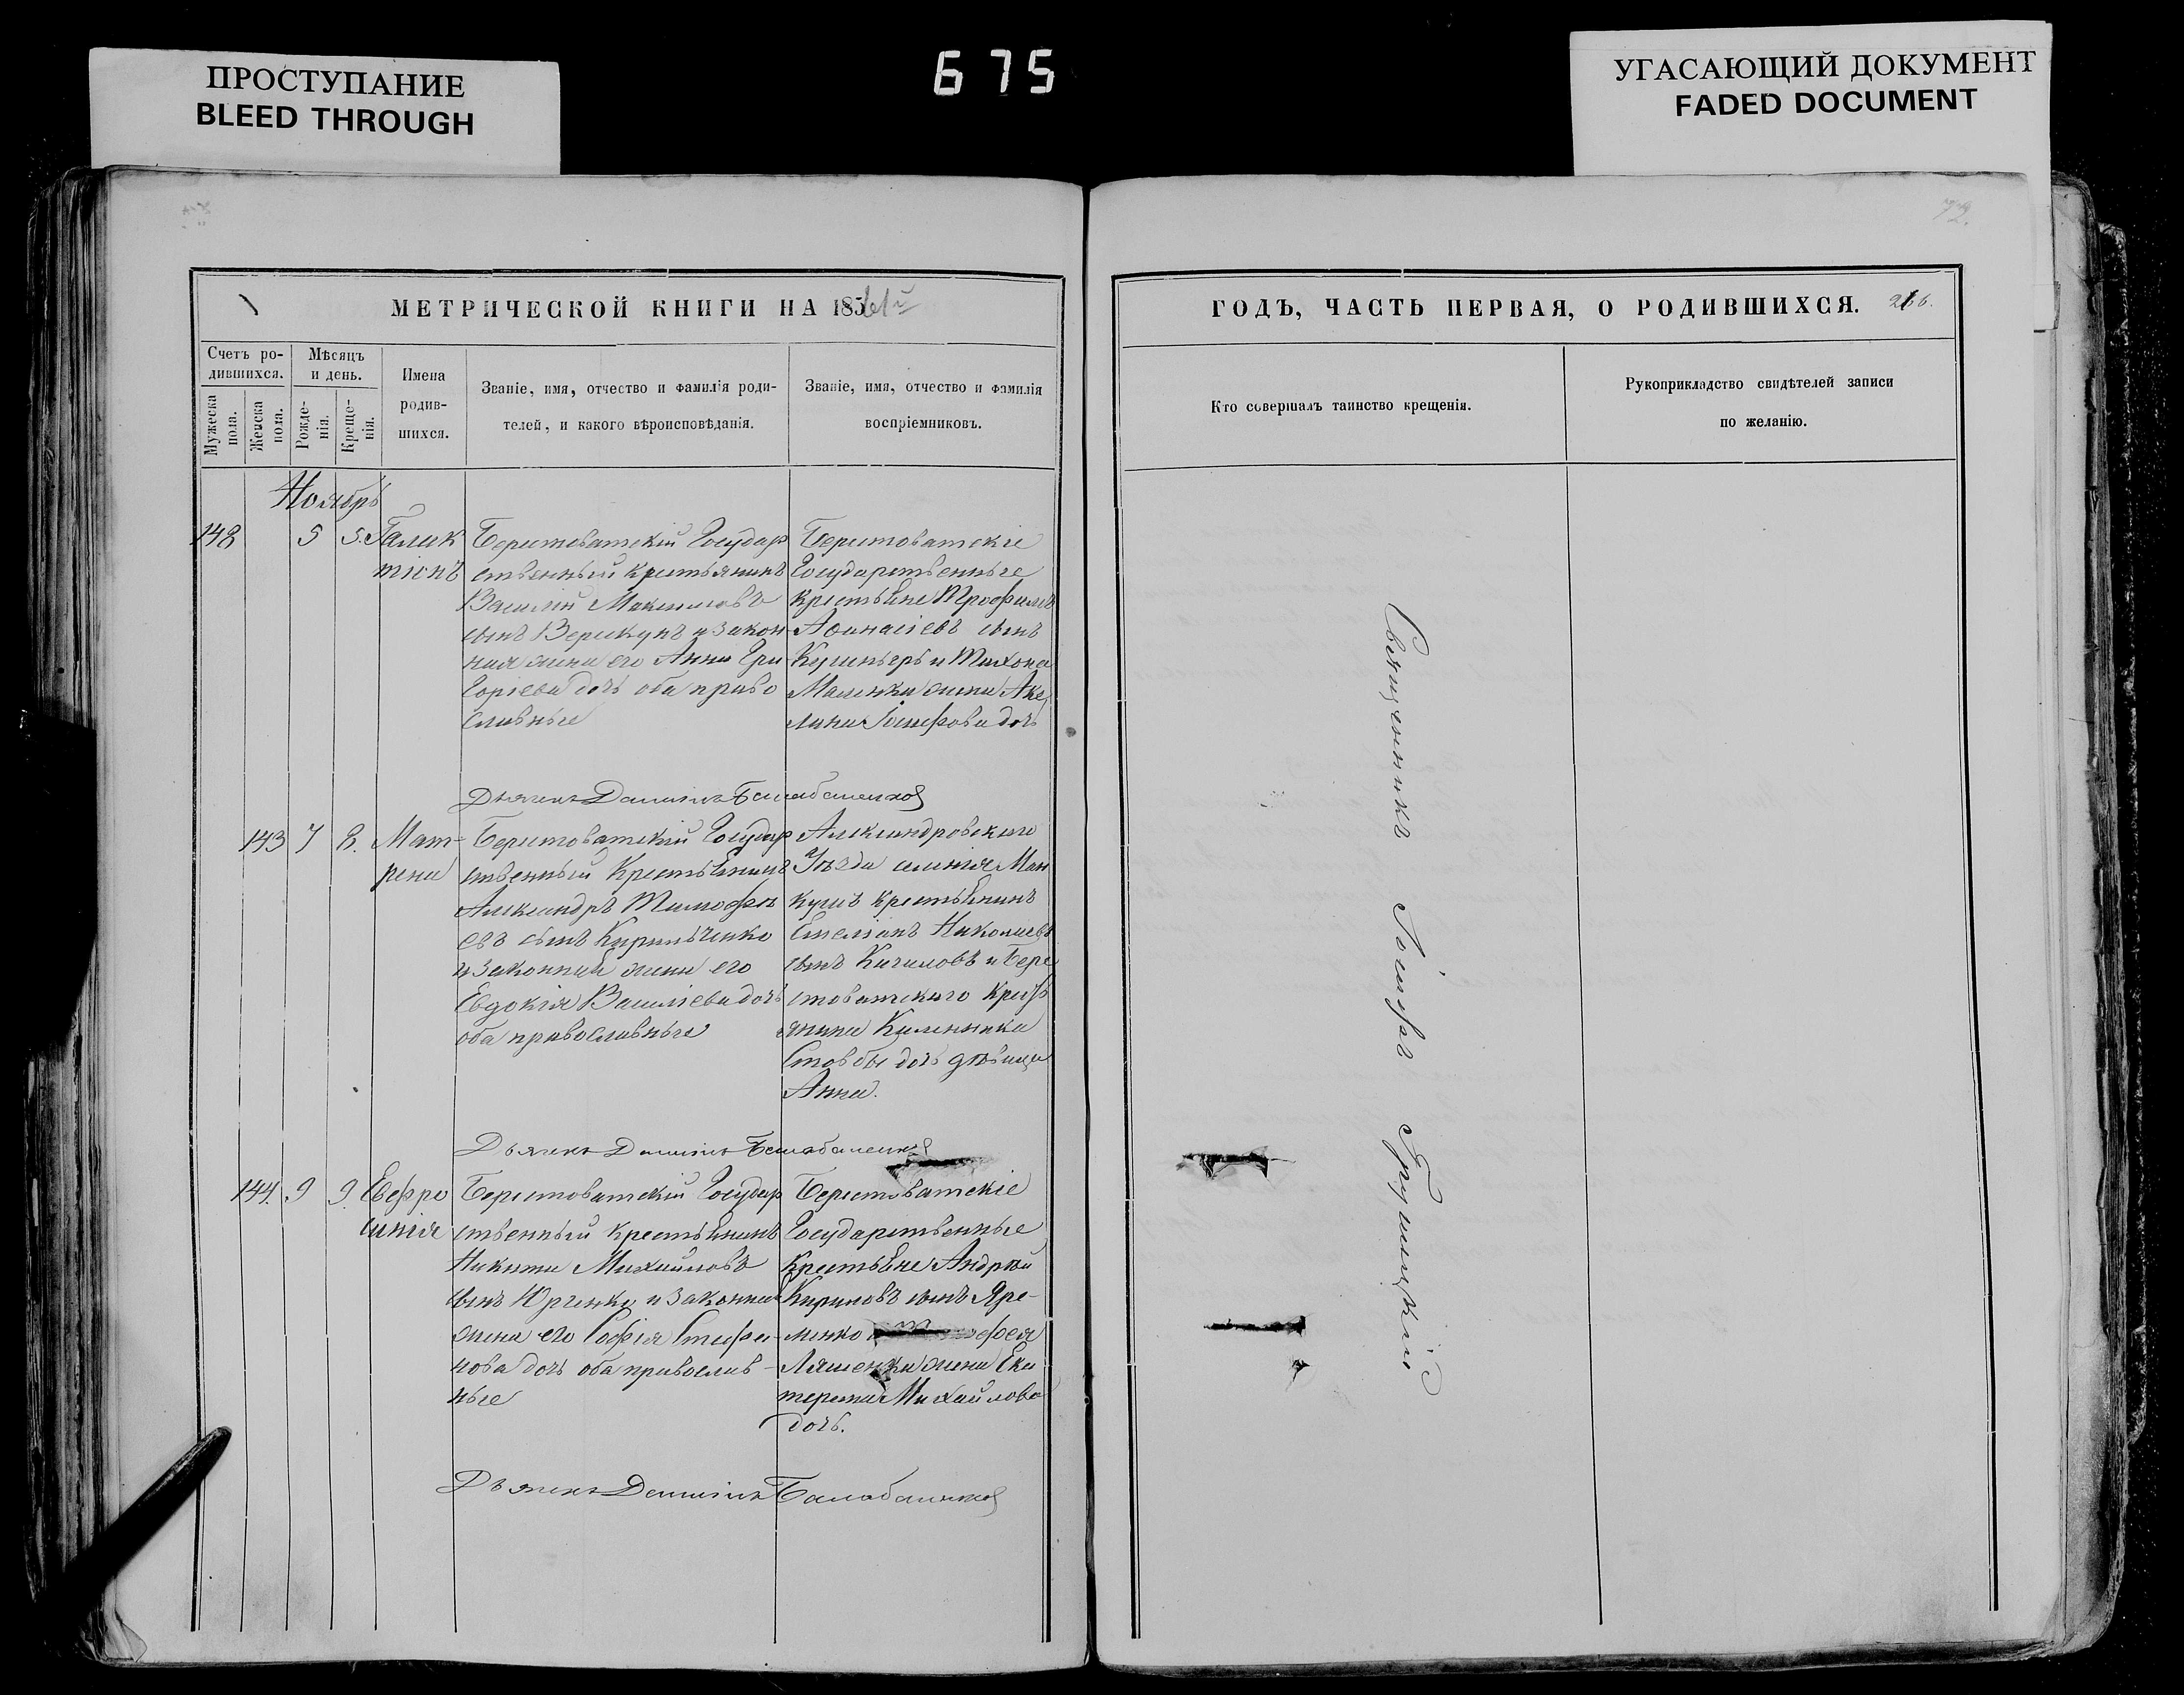 ПРОСТУПАНИЕ
BLEED THROUGH
675
УГАСАЮЩИЙ ДОКУМЕНТ
FADED DOCUMENT
72.
МЕТРИЧЕСКОЙ КНИГИ НА 1861й
Счетъ ро-
дившихся.
Мужеска
пола.
Женска
пола.
Мѣсяцъ
и день.
Рожде-
нія.
Креще-
нія.
Имена
родив-
шихся.
Званіе, имя, отчество и фамилія роди-
телей, и какого вѣроисповѣданія.
Званіе, имя, отчество и фамилія
воспріемниковъ.
Ноябрь
148 5 5. Галик
тіонъ
Берестоватскій Государ
ственный крестьянинъ
Василій Максимовъ
сынъ Верикунъ и закон-
ная жена его Анна Гри
горіева дочь оба право
славные
Берестоватскіе
Государственные
крестьяне Трофимъ
Афанасіевъ сынъ
Кушнеръ и Тихона
жена Аку
лина Іосифова дочь
Дьячекъ Балабаненко
143 7 8. Мат-
рена
Берестоватскій Государ
ственный Крестьянинъ
Александръ Тимофѣ
евъ сынъ Кириченко
и законная жена его
Евдокія Василіева дочь
оба православные
Александровскаго
Уѣзда селенія Ман
куши крестьянинъ
Емеліанъ Николаевъ
сынъ и Бере
стоватскаго Крест
янина
дочь дѣвица
Анна.
Дьячекъ Балабаненко
144. 9 9. Евфро
синія
Берестоватскій Государ
ственный крестьянинъ
Никита Михайловъ
сынъ Юрченко и законная
жена его Софія Стефа-
нова дочь оба православ-
ные
Берестоватскіе
Государственные
Крестьяне Андрей
Кириловъ сынъ Яре-
менко фея
Ляшенка жена Ека
терина Михайлова
дочь.
Дьячекъ Балабаненко
ГОДЪ, ЧАСТЬ ПЕРВАЯ, О РОДИВШИХСЯ.
Кто совершалъ таинство крещенія.
Рукоприкладство свидѣтелей записи
по желанію.
Священникъ Іосифъ